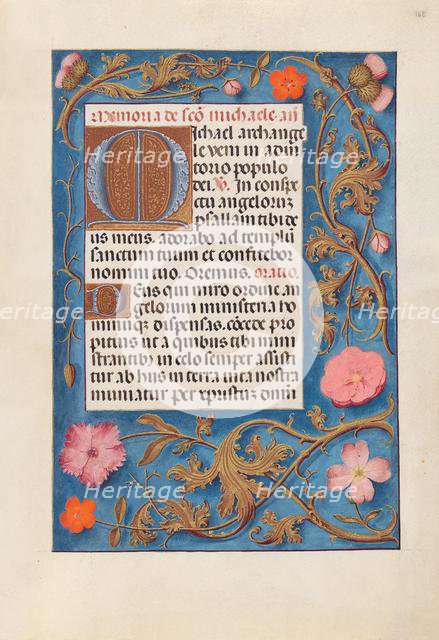 Memoria de sco michaele an
Michael archange
le veni in adiu
torio populo
dei. V. In conspe
ctu angelorum
psallam tibi de
us meus. adorabo ad templū
sanctum tuum et confitebor
nomini tuo. Oremus. Oratio.
Deus qui miro ordine an
gelorum ministeria ho
minūq; dispensas. cōcede pro
pitius ut a quibus tibi mini
strantibus in celo semper assisti
tur ab hijs in terra vita nostra
muniatur per xpristum dnm
Heritage Images